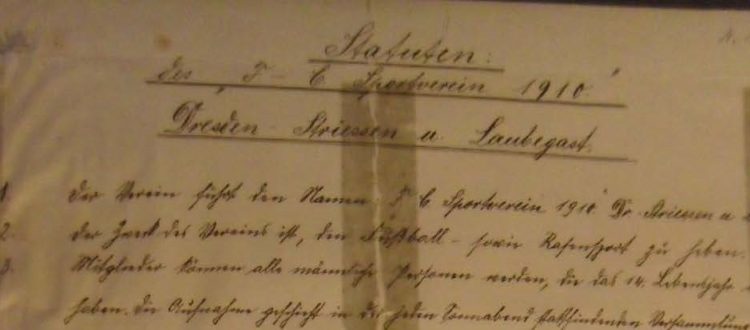 Statuten:
des "F-C Sportverein 1910"
Dresden-Striessen u. Laubegast.
1. Der Verein führt den Namen F C Sportverein 1910 Dr. Striessen u
2. Der Zweck des Vereins ist, den Fußball- sowie Rasensport zu heben.
3. Mitglieder können alle männliche Personen werden, die das 14. Lebensjahr
haben. Die Aufnahme geschieht in der jeden Sonnabend stattfindenden Versammlung